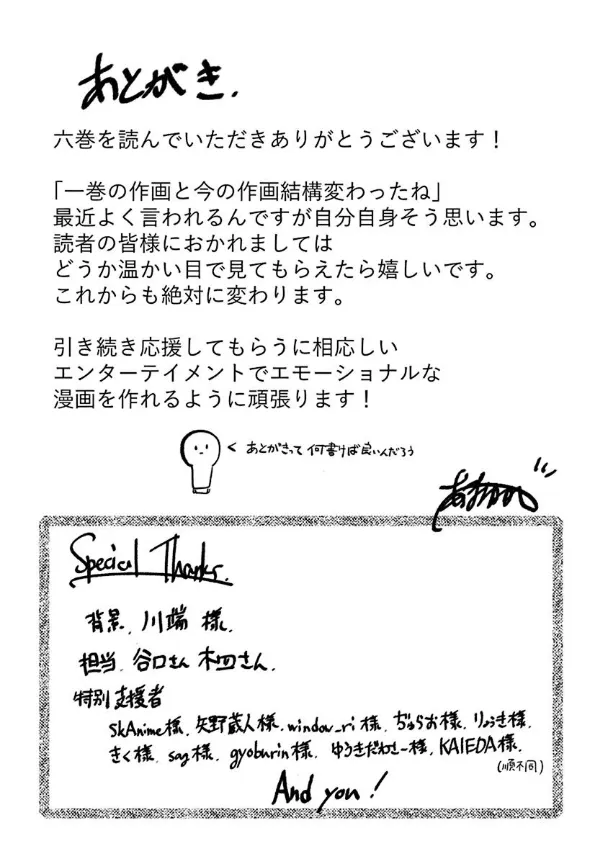 あとがき.
六巻を読んでいただきありがとうございます！
「一巻の作画と今の作画結構変わったね」
最近よく言われるんですが自分自身そう思います。
読者の皆様におかれましては
どうか温かい目で見てもらえたら嬉しいです。
これからも絶対に変わります。
引き続き応援してもらうに相応しい
エンターテイメントでエモーショナルな
漫画を作れるように頑張ります！
< あとがきって何書けば良いんだろう
Special Thanks.
背景. 川端 様.
担当. 谷口さん 木四さん.
特別支援者
SkAnime様. 矢野蔵人様. window_ri様. ぢゅらお様. りょうき様.
きく様. sag様. gyoburin様. ゆうきだわさー様. KAIEDA様.
(順不同)
And you!